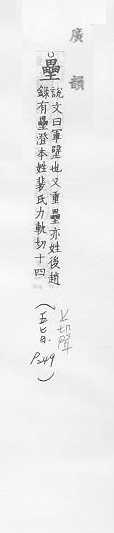 廣韻
壘
說文曰軍壁也又重壘亦姓後趙
錄有壘澄本姓裴氏力軌切十四
(五七B. P249)
上切聲